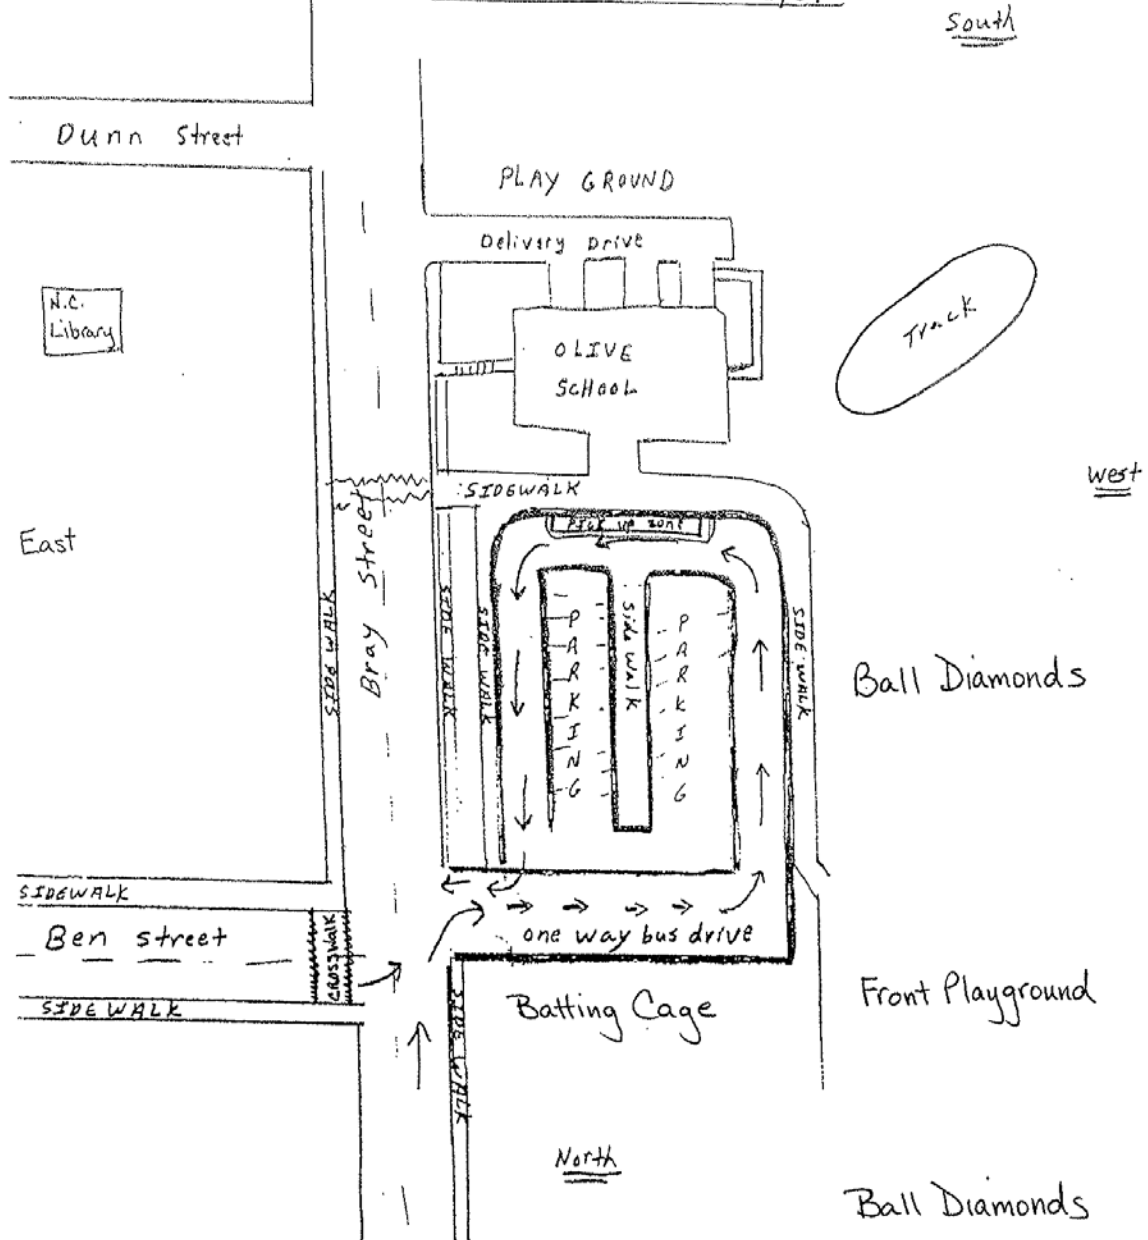 South
Dunn Street
PLAY GROUND
Delivery Drive
N.C.
Library
Track
OLIVE
SCHOOL
West
SIDEWALK
Pick up zone
East
Bray Street
SIDE WALK
SIDE WALK
SIDE WALK
PARKING
Side Walk
PARKING
SIDE WALK
Ball Diamonds
SIDEWALK
Ben street
CROSSWALK
one way bus drive
SIDE WALK
Batting Cage
Front Playground
SIDE WALK
North
Ball Diamonds